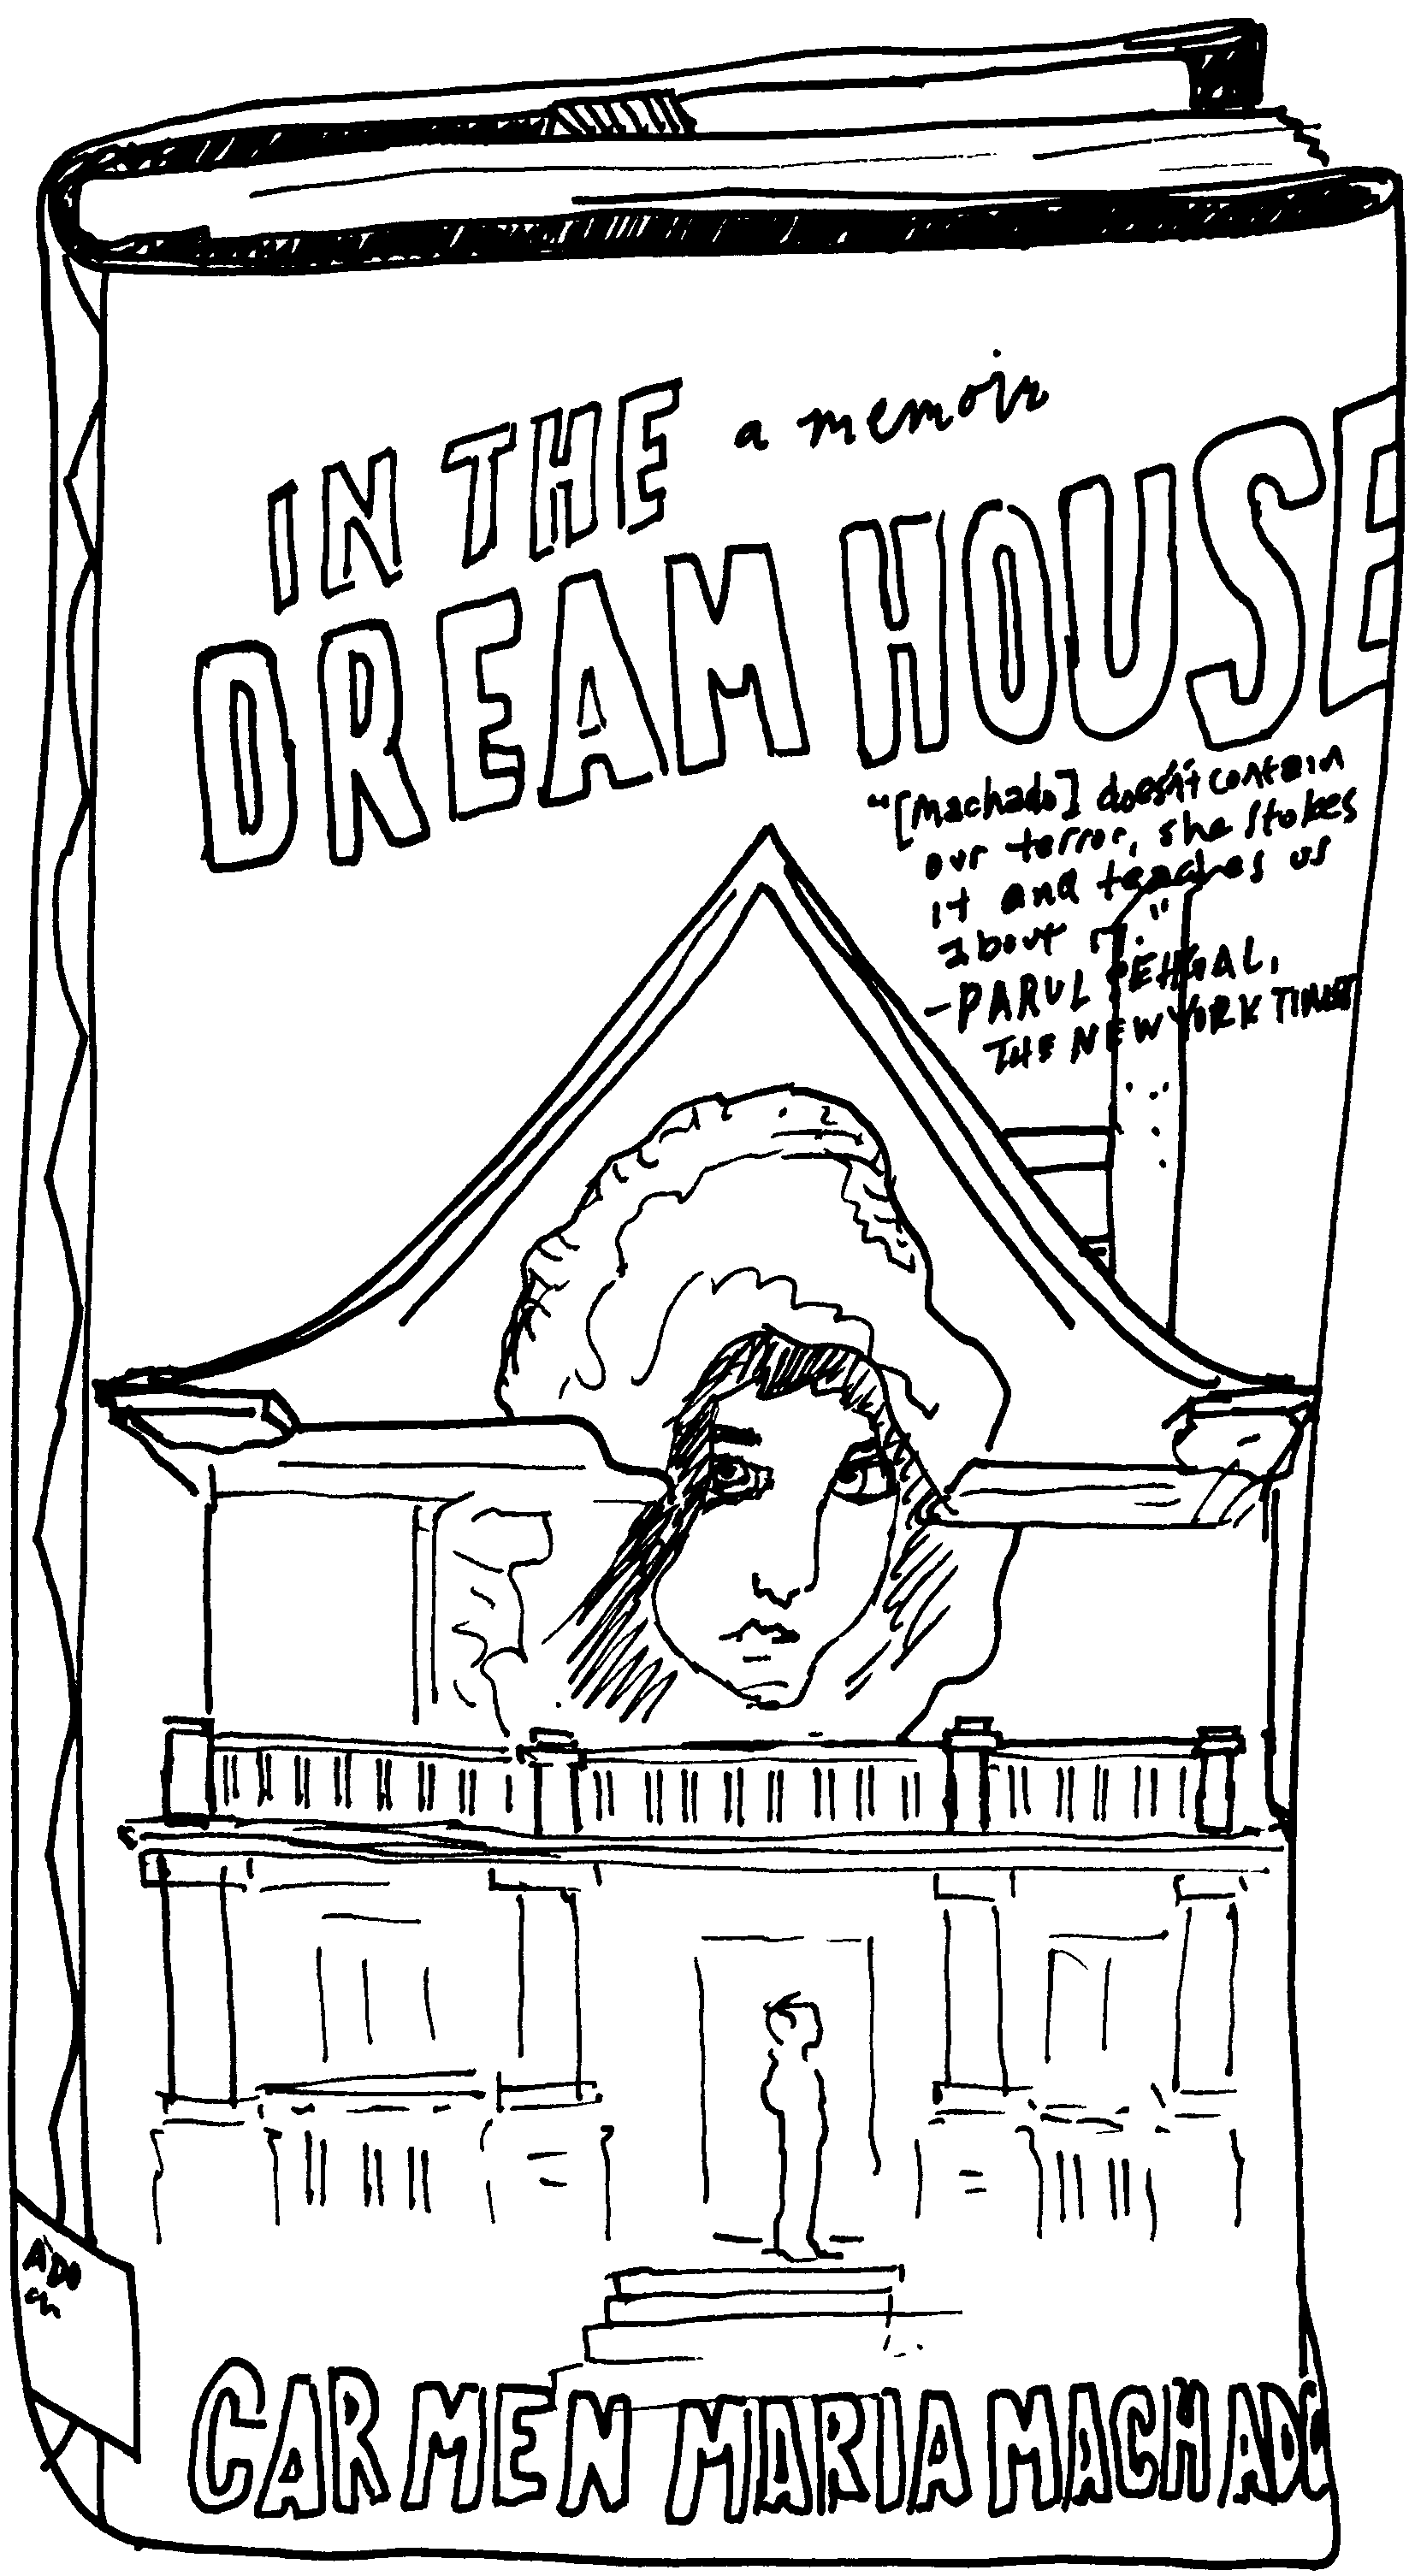 IN THE a memoir
DREAM HOUSE
"[Machado] doesn't contain
our terror, she stokes
it and teaches us
about it."
-PARUL SEHGAL,
THE NEW YORK TIMES
ADO
CARMEN MARIA MACHADO